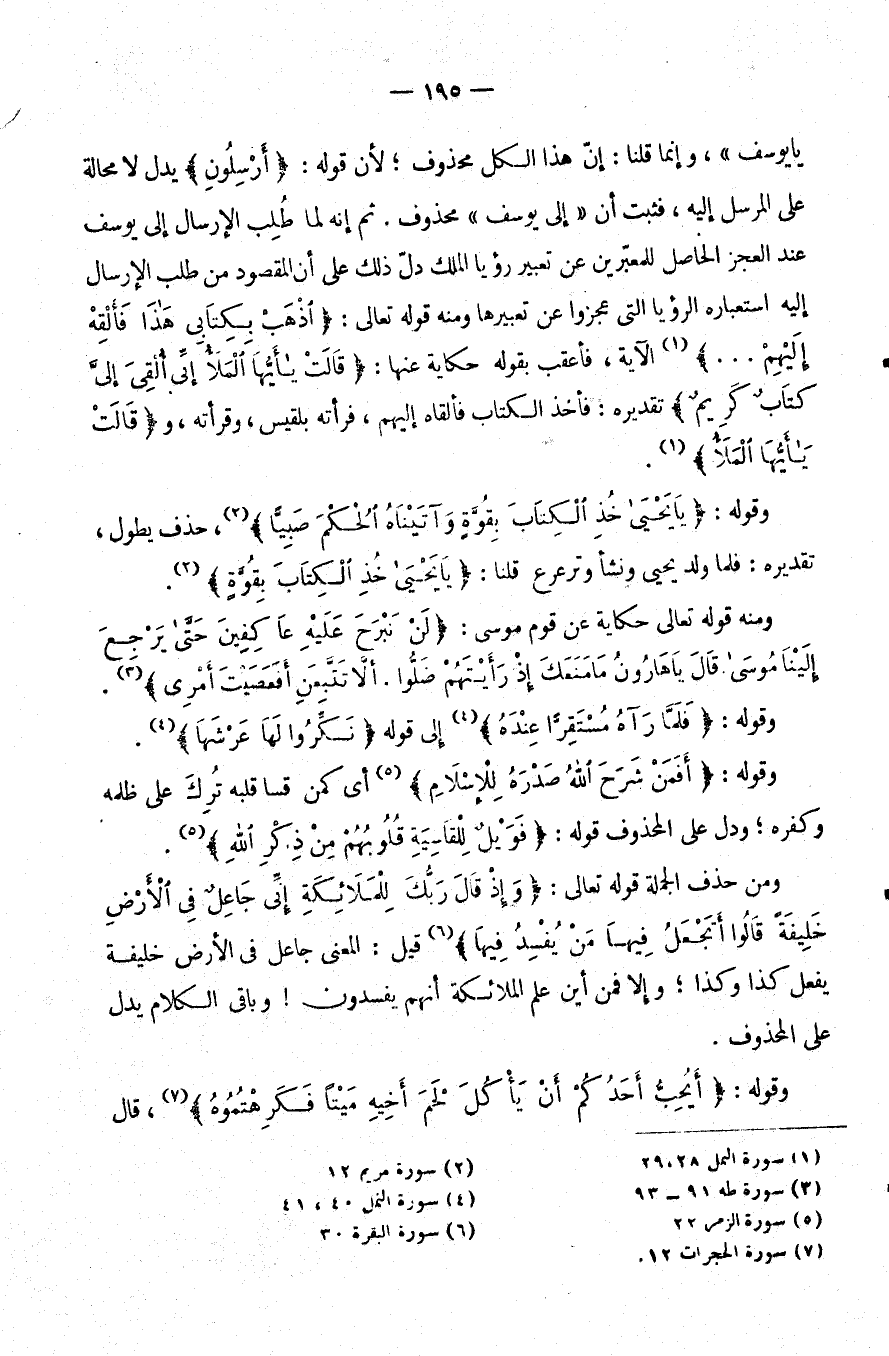 — ١٩٥ —
يايوسف » ، وإنما قلنا : إنّ هذا الكل محذوف ؛ لأن قوله : ﴿ أَرْسِلُونِ ﴾ يدل لا محالة
على المرسل إليه ، فثبت أن « إلى يوسف » محذوف . ثم إنه لما طُلِب الإرسال إلى يوسف
عند العجز الحاصل للمعبّرين عن تعبير رؤيا الملك دلّ ذلك على أن المقصود من طلب الإرسال
إليه استعباره الرؤيا التى عجزوا عن تعبيرها ومنه قوله تعالى : ﴿ ٱذْهَبْ بِكِتَابِى هَٰذَا فَأَلْقِهْ
إِلَيْهِمْ ... ﴾ (١) الآية ، فأعقب بقوله حكاية عنها : ﴿ قَالَتْ يَٰأَيُّهَا ٱلْمَلَأُ إِنِّى أُلْقِىَ إِلَىَّ
كِتَابٌ كَرِيمٌ ﴾ تقديره : فأخذ الكتاب فألقاه إليهم ، فرأته بلقيس ، وقرأته ، و ﴿ قَالَتْ
يَٰأَيُّهَا ٱلْمَلَأُ ﴾ (١) .
وقوله : ﴿ يَايَحْيَىٰ خُذِ ٱلْكِتَابَ بِقُوَّةٍ وَآتَيْنَاهُ ٱلْحُكْمَ صَبِيًّا ﴾ (٢) ، حذف يطول ،
تقديره : فلما ولد يحيى ونشأ وترعرع قلنا : ﴿ يَايَحْيَىٰ خُذِ ٱلْكِتَابَ بِقُوَّةٍ ﴾ (٢) .
ومنه قوله تعالى حكاية عن قوم موسى : ﴿ لَنْ نَبْرَحَ عَلَيْهِ عَاكِفِينَ حَتَّىٰ يَرْجِعَ
إِلَيْنَا مُوسَىٰ. قَالَ يَاهَارُونُ مَامَنَعَكَ إِذْ رَأَيْتَهُمْ ضَلُّوا . أَلَّا تَتَّبِعَنِ أَفَعَصَيْتَ أَمْرِى ﴾ (٣) .
وقوله : ﴿ فَلَمَّا رَآهُ مُسْتَقِرًّا عِنْدَهُ ﴾ (٤) إلى قوله ﴿ نَكِّرُوا لَهَا عَرْشَهَا ﴾ (٤) .
وقوله : ﴿ أَفَمَنْ شَرَحَ ٱللهُ صَدْرَهُ لِلْإِسْلَامِ ﴾ (٥) أى كمن قسا قلبه تُرِكَ على ظلمه
وكفره ؛ ودل على المحذوف قوله : ﴿ فَوَيْلٌ لِلْقَاسِيَةِ قُلُوبُهُمْ مِنْ ذِكْرِ ٱللهِ ﴾ (٥) .
ومن حذف الجملة قوله تعالى : ﴿ وَإِذْ قَالَ رَبُّكَ لِلْمَلَائِكَةِ إِنِّى جَاعِلٌ فِى ٱلْأَرْضِ
خَلِيفَةً قَالُوا أَتَجْعَلُ فِيهَا مَنْ يُفْسِدُ فِيهَا ﴾ (٦) قيل : المعنى جاعل فى الأرض خليفة
يفعل كذا وكذا ؛ وإلا فمن أين علم الملائكة أنهم يفسدون ! وباقى الكلام يدل
على المحذوف .
وقوله : ﴿ أَيُحِبُّ أَحَدُكُمْ أَنْ يَأْكُلَ لَحْمَ أَخِيهِ مَيْتًا فَكَرِهْتُمُوهُ ﴾ (٧) ، قال
(١) سورة النمل ٢٨، ٢٩
(٢) سورة مريم ١٢
(٣) سورة طه ٩١ – ٩٣
(٤) سورة النمل ٤٠ ، ٤١
(٥) سورة الزمر ٢٢
(٦) سورة البقرة ٣٠
(٧) سورة الحجرات ١٢ .